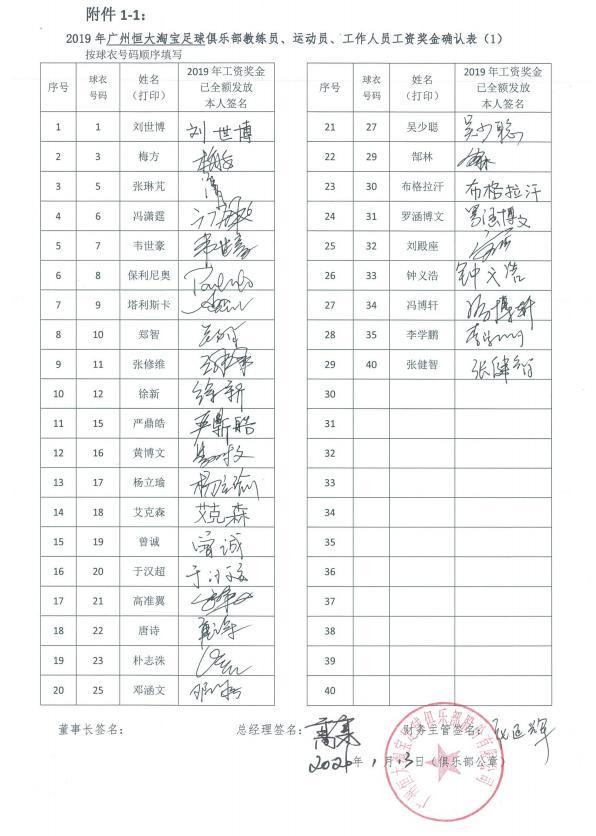 附件 1-1：
2019 年广州恒大淘宝足球俱乐部教练员、运动员、工作人员工资奖金确认表（1）
按球衣号码顺序填写
序号 球衣号码 姓名（打印） 2019 年工资奖金已全额发放本人签名
1 1 刘世博 刘世博
2 3 梅方 梅方
3 5 张琳芃
4 6 冯潇霆
5 7 韦世豪 韦世豪
6 8 保利尼奥
7 9 塔利斯卡
8 10 郑智
9 11 张修维
10 12 徐新 徐新
11 15 严鼎皓 严鼎皓
12 16 黄博文
13 17 杨立瑜 杨立瑜
14 18 艾克森 艾克森
15 19 曾诚 曾诚
16 20 于汉超 于汉超
17 21 高准翼
18 22 唐诗
19 23 朴志洙
20 25 邓涵文
序号 球衣号码 姓名（打印） 2019 年工资奖金已全额发放本人签名
21 27 吴少聪 吴少聪
22 29 郜林
23 30 布格拉汗 布格拉汗
24 31 罗涵博文 罗涵博文
25 32 刘殿座
26 33 钟义浩 钟义浩
27 34 冯博轩 冯博轩
28 35 李学鹏
29 40 张健智 张健智
30
31
32
33
34
35
36
37
38
39
40
董事长签名： 总经理签名： 财务主管签名：
2020年 1月 13日（俱乐部公章）
广州恒大淘宝足球俱乐部股份有限公司